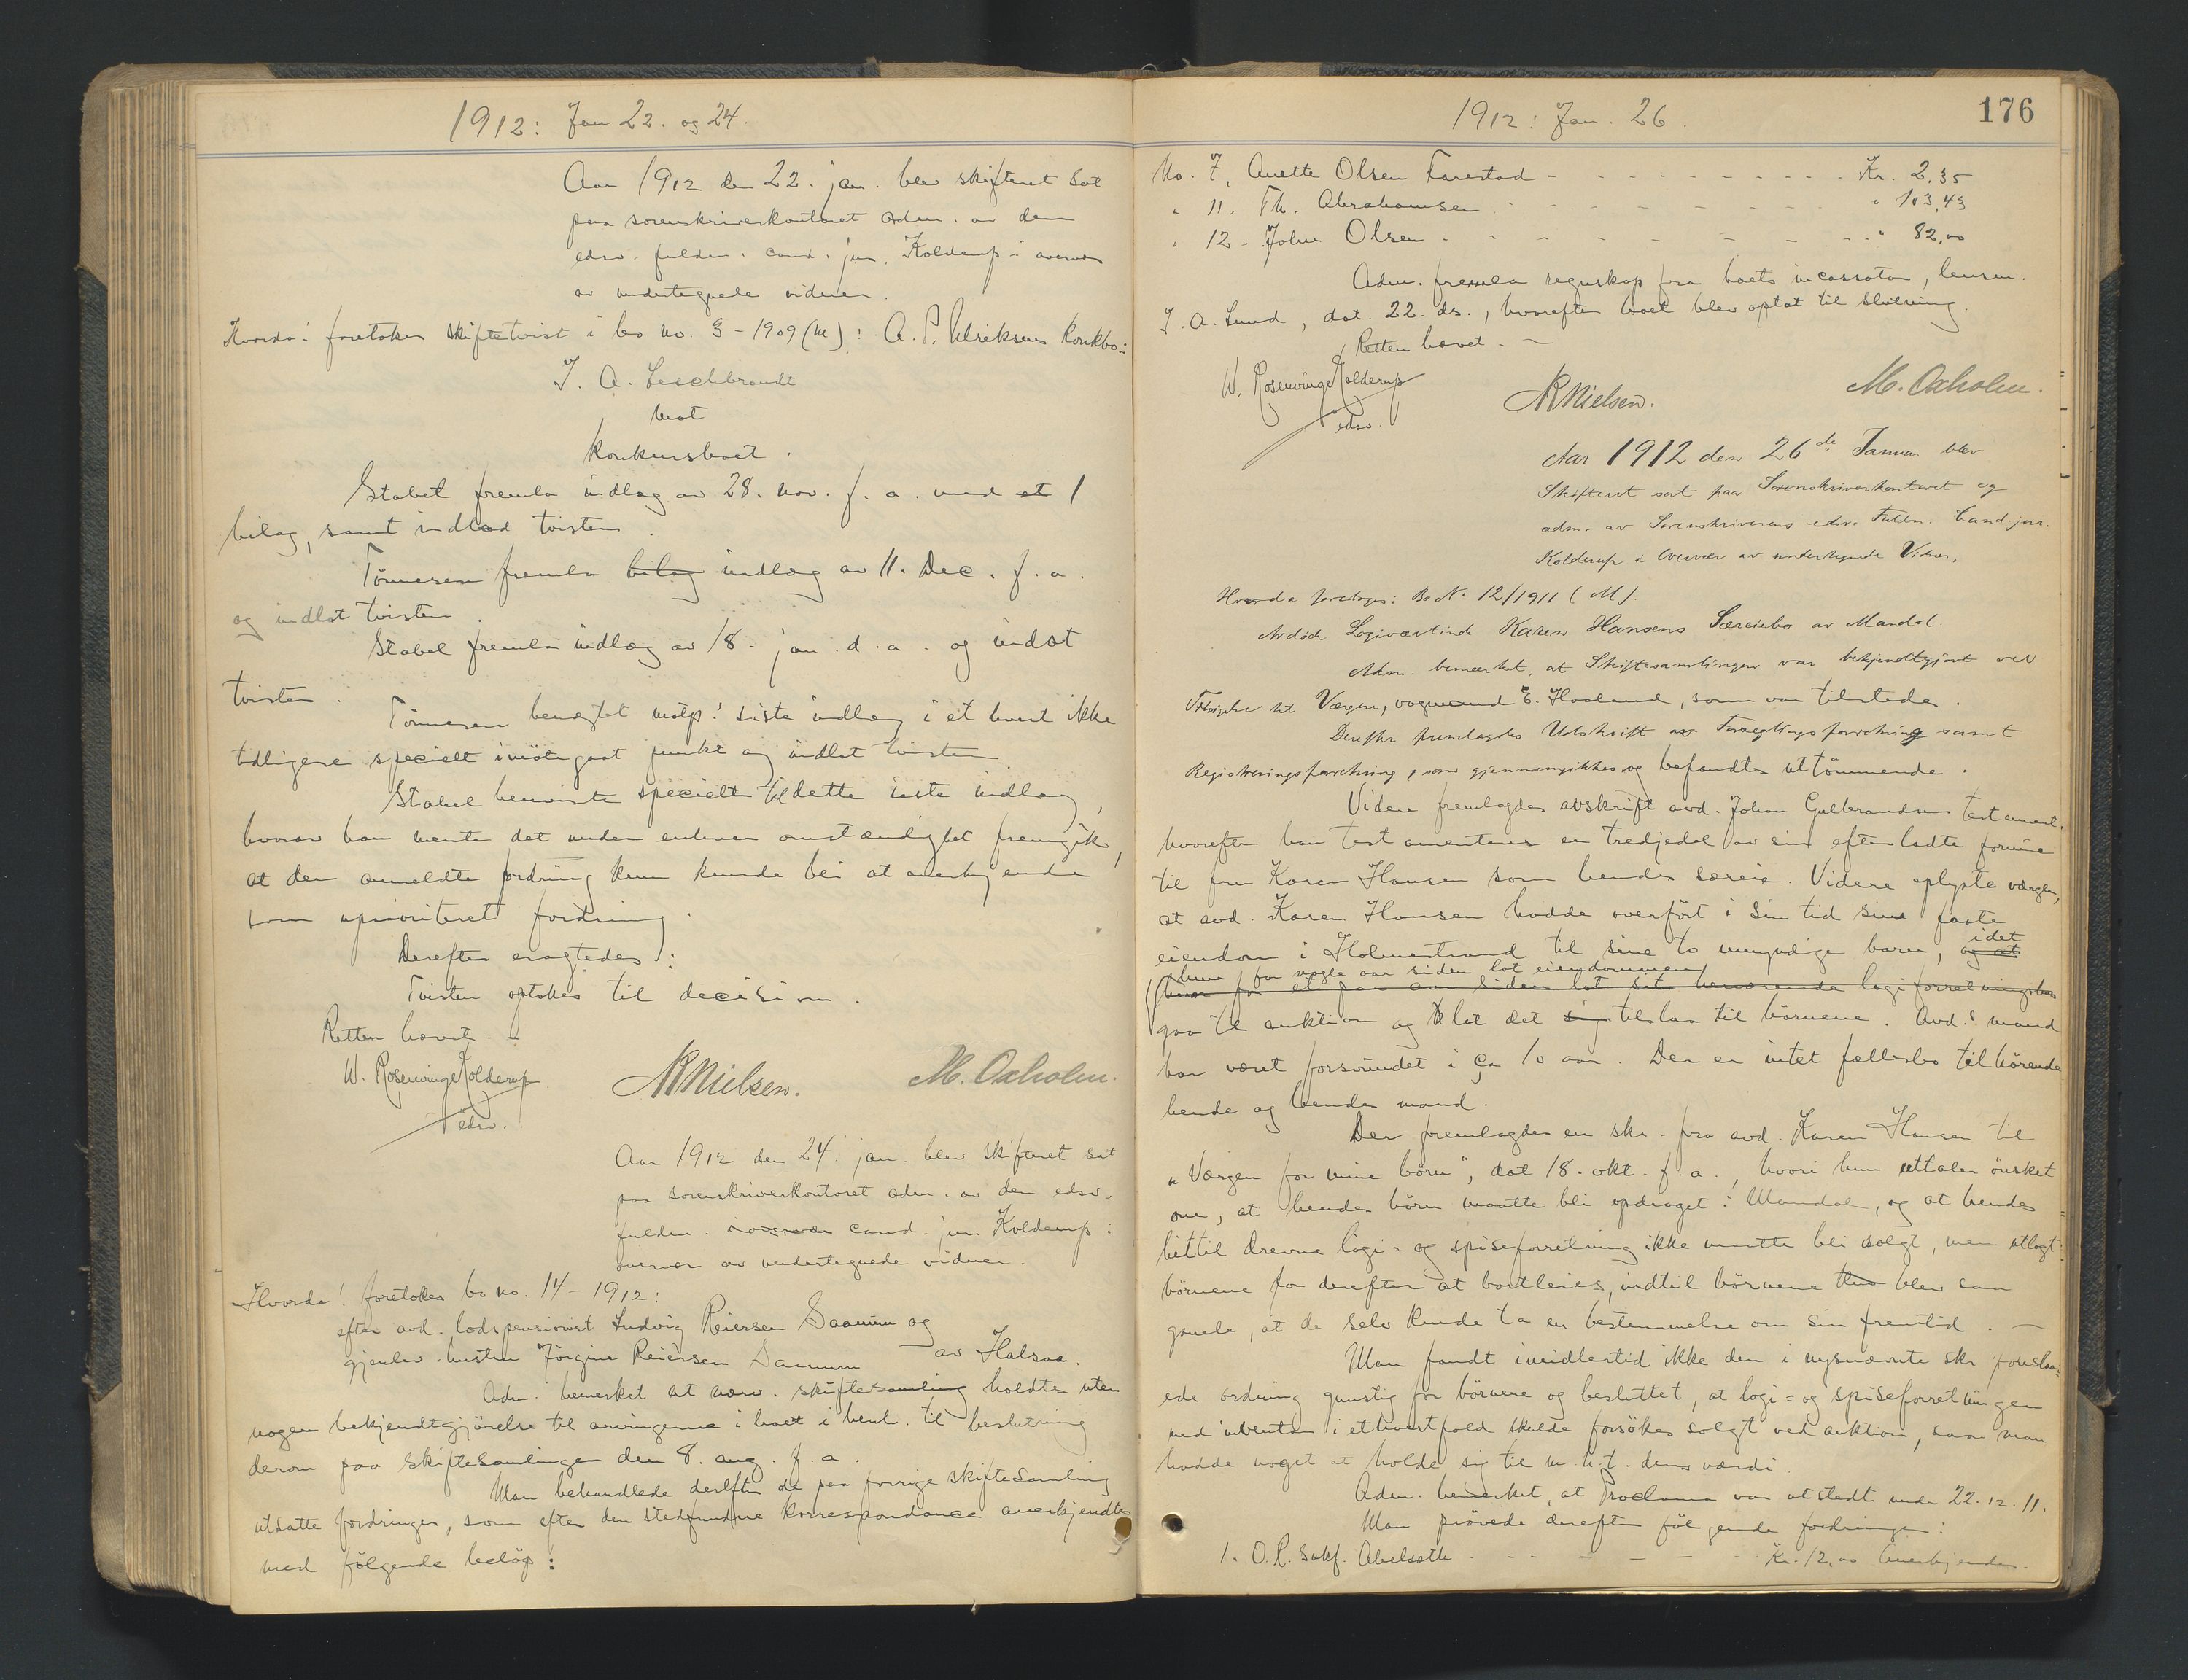 1912: Jan 22. og 24.
Aar 1912 den 22. jan. blev skifteret sat
paa sorenskriverkontoret adm. av den
edsv. fuldm. cand. jur. Kolderup i overvær
av undertegnede vidner.
Hvorda: foretokes skiftetvist i bo no. 3-1909 (M): A. P. Ulriksens konkbo:
J. A. Leschbrandt
mot
konkursboet.
Stabel fremla indlæg av 28. nov. f. a. med et 1
bilag, samt indlod tvisten.
Tönnesen fremla bilag indlæg av 11. Dec. f. a.
og indlot tvisten.
Stabel fremla indlæg av 18. jan. d. a. og indlot
tvisten.
Tönnesen benegtet motp! siste indlæg i et hvert ikke
tidligere specielt imötegaat punkt og indlot tvisten
Stabel henviste specielt til dette siste indlæg,
hvorav han mente det under enhver omstændighet fremgik,
at den anmeldte fordring kun kunde bli at anerkjende
som uprioriteret fordring.
Derefter eragtedes:
Tvisten optokes til decision.
Retten hævet. -
W. Rosenvinge Kolderup.
edsv.
NRNielsen.
M. Oxholm.
Aar 1912 den 24. jan. blev skifteret sat
paa sorenskriverkontoret adm. av den edsv.
fuldm. i overvær cand. jur. Kolderup i
overvær av undertegnede vidner.
Hvorda! foretokes bo no. 14-1912:
efter avd. lodspensionist Ludvig Reiersen Saanum og
gjenlev. hustru Jörgine Reiersen Saanum av Halsaa.
Adm. bemerket at nærv. skiftesamling holdtes uten
nogen bekjendtgjörelse til arvingerne i boet i henh. til beslutning
derom paa skiftesamlingen den 8. aug. f. a.
Man behandlede derefter de paa forrige skiftesamling
utsatte fordringer, som efter den stedfundne korrespondance anerkjendtes
med fölgende belöp:
1912: Jan. 26.
176
No. 7, Anette Olsen Farestad - Kr. 2,35
" 11. Th. Abrahamsen - " 103,43
" 12 - John Olsen - " 82,00
Adm. fremla regnskap fra boets incassator, lensm.
J. A. Lund, dat. 22. ds., hvorefter boet blev optat til slutning.
Retten hævet. -
W. Rosenvinge Kolderup
edsv.
NRNielsen.
M. Oxholm.
Aar 1912 den 26de Januar blev
Skifteret sat paa Sorenskriverkontoret og
adm. av Sorenskriverens edsv. Fuldm. Cand. jur.
Kolderup i Overvær av undertegnede Vidner.
Hvorda foretoges: Bo No 12/1911 (M).
Avdöde Logiværtinde Karen Hansens Særeiebo av Mandal.
Adm. bemerket, at Skiftesamlingen var bekjendtgjort ved
Tilsigelse til Værgen, vognmand E. Haaland, som var tilstede.
Derefter fremlagdes Utskrift av Forseglingsforretning samt
Registreringsforretning, som gjennemgikkes og befandtes uttömmende.
Videre fremlagdes avskrift avd. Johan Gulbrandsens testament,
hvorefter han testamenterer en tredjedel av sin efterladte formue
til fru Karen Hansen som hendes særeie. Videre oplyste værgen,
at avd. Karen Hansen hadde overfört i sin tid sin faste
eiendom i Holmestrand til sine to umyndige barn, og at idet
hun for nogle aar siden lot eiendommen
hun for et par aar siden lot sit herværende logiforretningshus
gaa til auktion og lot det sig tilslaa til börnene. Avd.s mand
har været forsvundet i ca 10 aar. Der er intet fællesbo tilhörende
hende og hendes mand.
Der fremlagdes en skr. fra avd. Karen Hansen til
"Værgen for mine börn", dat 18. okt. f. a., hvori hun uttaler önsket
om, at hendes börn maatte bli opdraget i Mandal, og at hendes
hittil drevne logi= og spiseforretning ikke maatte bli solgt, men utlagt
börnene for derefter at bortleies, indtil börnene blev saa
gamle, at de selv kunde ta en bestemmelse om sin fremtid. -
Man fandt imidlertid ikke den i nysnævnte skr. foreslaa=
ede ordning gunstig for börnene og besluttet, at logi= og spiseforretningen
med inventar i ethvertfald skulde forsökes solgt ved auktion, saa man
hadde noget at holde sig til m. h. t. dens værdi
Adm. bemerket, at Proclama var utstedt under 22.12.11.
Man prövede derefter fölgende fordringer:
1. O. P. Sakf. Abelseth - Kr. 12,00 Anerkjendes.